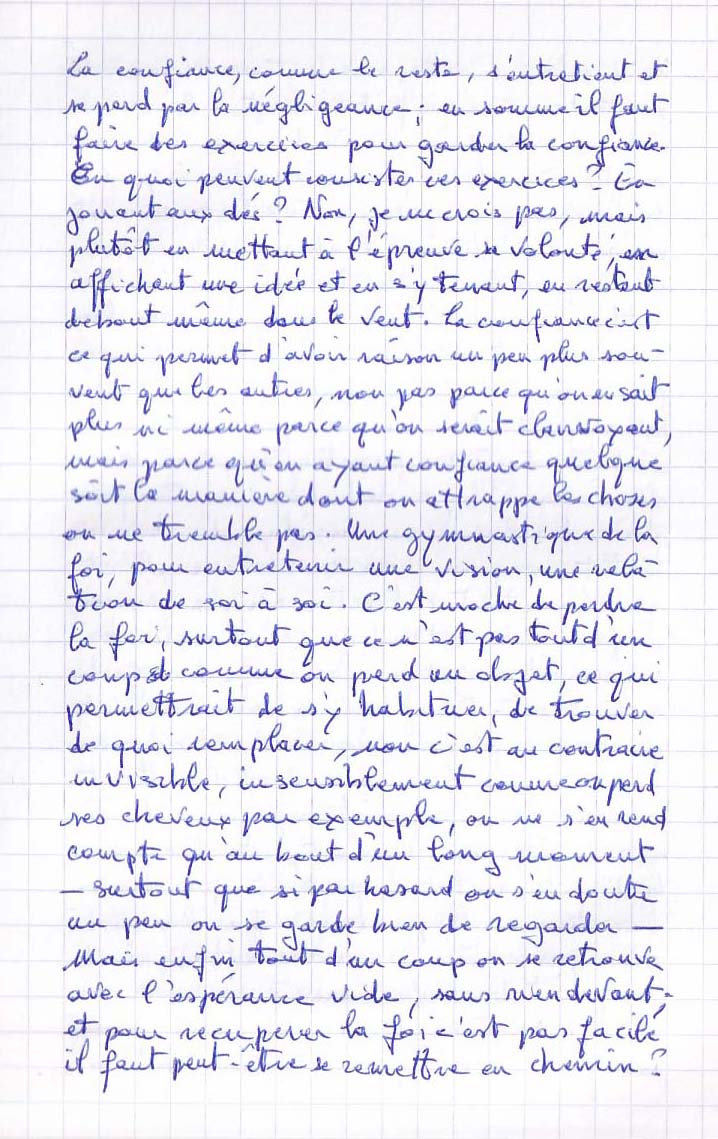 La confiance, comme le reste, s'entretient et
se perd par la négligeance ; en somme il faut
faire des exercices pour garder la confiance.
En quoi peuvent consister ces exercices ? En
jouant aux dés ? Non, je ne crois pas, mais
plutôt en mettant à l'épreuve sa volonté, en
affichant une idée et en s'y tenant, en restant
debout même dans le vent. La confiance c'est
ce qui permet d'avoir raison un peu plus sou-
vent que les autres, non pas parce qu'on en sait
plus ni même parce qu'on serait clairvoyant,
mais parce qu'en ayant confiance quelque
soit la manière dont on attrappe les choses
on ne tremble pas. Une gymnastique de la
foi, pour entretenir une vision, une rela-
tion de soi à soi. C'est moche de perdre
la foi, surtout que ce n'est pas tout d'un
coup comme on perd un objet, ce qui
permettrait de s'y habituer, de trouver
de quoi remplacer, non c'est au contraire
invisible, insensiblement comme on perd
ses cheveux par exemple, on ne s'en rend
compte qu'au bout d'un long moment
— surtout que si par hasard on s'en doute
un peu on se garde bien de regarder —
Mais enfin tout d'un coup on se retrouve
avec l'espérance vide, sans rien devant,
et pour recuperer la foi c'est pas facile
il faut peut-être se remettre en chemin ?